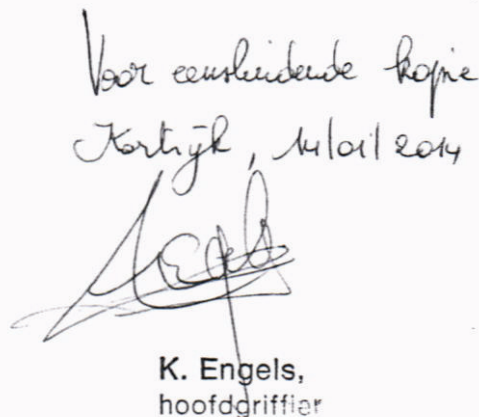 Voor eensluidende kopie
Kortrijk, 14/01/2014
K. Engels,
hoofdgriffier